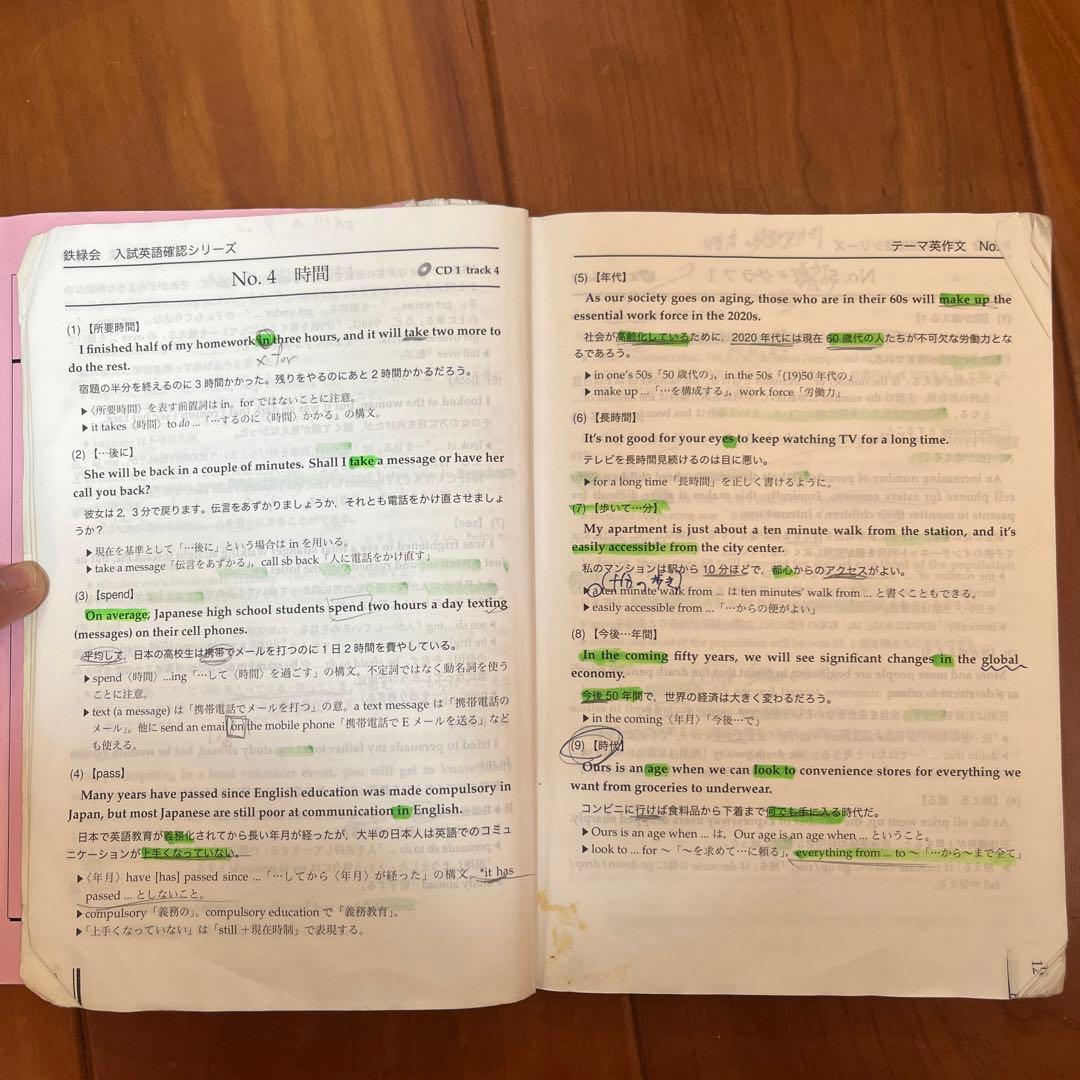 鉄緑会 入試英語確認シリーズ
No. 4 時間
CD 1 track 4
(1)【所要時間】
I finished half of my homework in three hours, and it will take two more to
× for
do the rest.
宿題の半分を終えるのに 3 時間かかった。残りをやるのにあと 2 時間かかるだろう。
▶〈所要時間〉を表す前置詞は in。for ではないことに注意。
▶it takes〈時間〉to do ...「…するのに〈時間〉かかる」の構文。
(2)【…後に】
She will be back in a couple of minutes. Shall I take a message or have her
call you back?
彼女は 2, 3 分で戻ります。伝言をあずかりましょうか，それとも電話をかけ直させましょ
うか？
▶現在を基準として「…後に」という場合は in を用いる。
▶take a message「伝言をあずかる」, call sb back「人に電話をかけ直す」
(3)【spend】
On average, Japanese high school students spend two hours a day texting
(messages) on their cell phones.
平均して，日本の高校生は携帯でメールを打つのに 1 日 2 時間を費やしている。
▶spend〈時間〉...ing「…して〈時間〉を過ごす」の構文。不定詞ではなく動名詞を使う
ことに注意。
▶text (a message) は「携帯電話でメールを打つ」の意。a text message は「携帯電話の
メール」。他に send an email on the mobile phone「携帯電話で E メールを送る」など
も使える。
(4)【pass】
Many years have passed since English education was made compulsory in
Japan, but most Japanese are still poor at communication in English.
日本で英語教育が義務化されてから長い年月が経ったが，大半の日本人は英語でのコミュ
ニケーションが上手くなっていない。
▶〈年月〉have [has] passed since ...「…してから〈年月〉が経った」の構文。*it has
passed ... としないこと。
▶compulsory「義務の」。compulsory education で「義務教育」。
▶「上手くなっていない」は「still＋現在時制」で表現する。
テーマ英作文 No.
(5)【年代】
As our society goes on aging, those who are in their 60s will make up the
essential work force in the 2020s.
社会が高齢化しているために，2020 年代には現在 60 歳代の人たちが不可欠な労働力とな
るであろう。
▶in one's 50s「50 歳代の」, in the 50s「(19)50 年代の」
▶make up ...「…を構成する」, work force「労働力」
(6)【長時間】
It's not good for your eyes to keep watching TV for a long time.
テレビを長時間見続けるのは目に悪い。
▶for a long time「長時間」を正しく書けるように。
(7)【歩いて…分】
My apartment is just about a ten minute walk from the station, and it's
easily accessible from the city center.
私のマンションは駅から 10 分ほどで，都心からのアクセスがよい。
▶a ten minute walk from ... は ten minutes' walk from ... と書くこともできる。
▶easily accessible from ...「…からの便がよい」
(8)【今後…年間】
In the coming fifty years, we will see significant changes in the global
economy.
今後 50 年間で，世界の経済は大きく変わるだろう。
▶in the coming〈年月〉「今後…で」
(9)【時代】
Ours is an age when we can look to convenience stores for everything we
want from groceries to underwear.
コンビニに行けば食料品から下着まで何でも手に入る時代だ。
▶Ours is an age when ... は，Our age is an age when ... ということ。
▶look to ... for ～「～を求めて…に頼る」, everything from ... to ～「…から～まで全て」
12